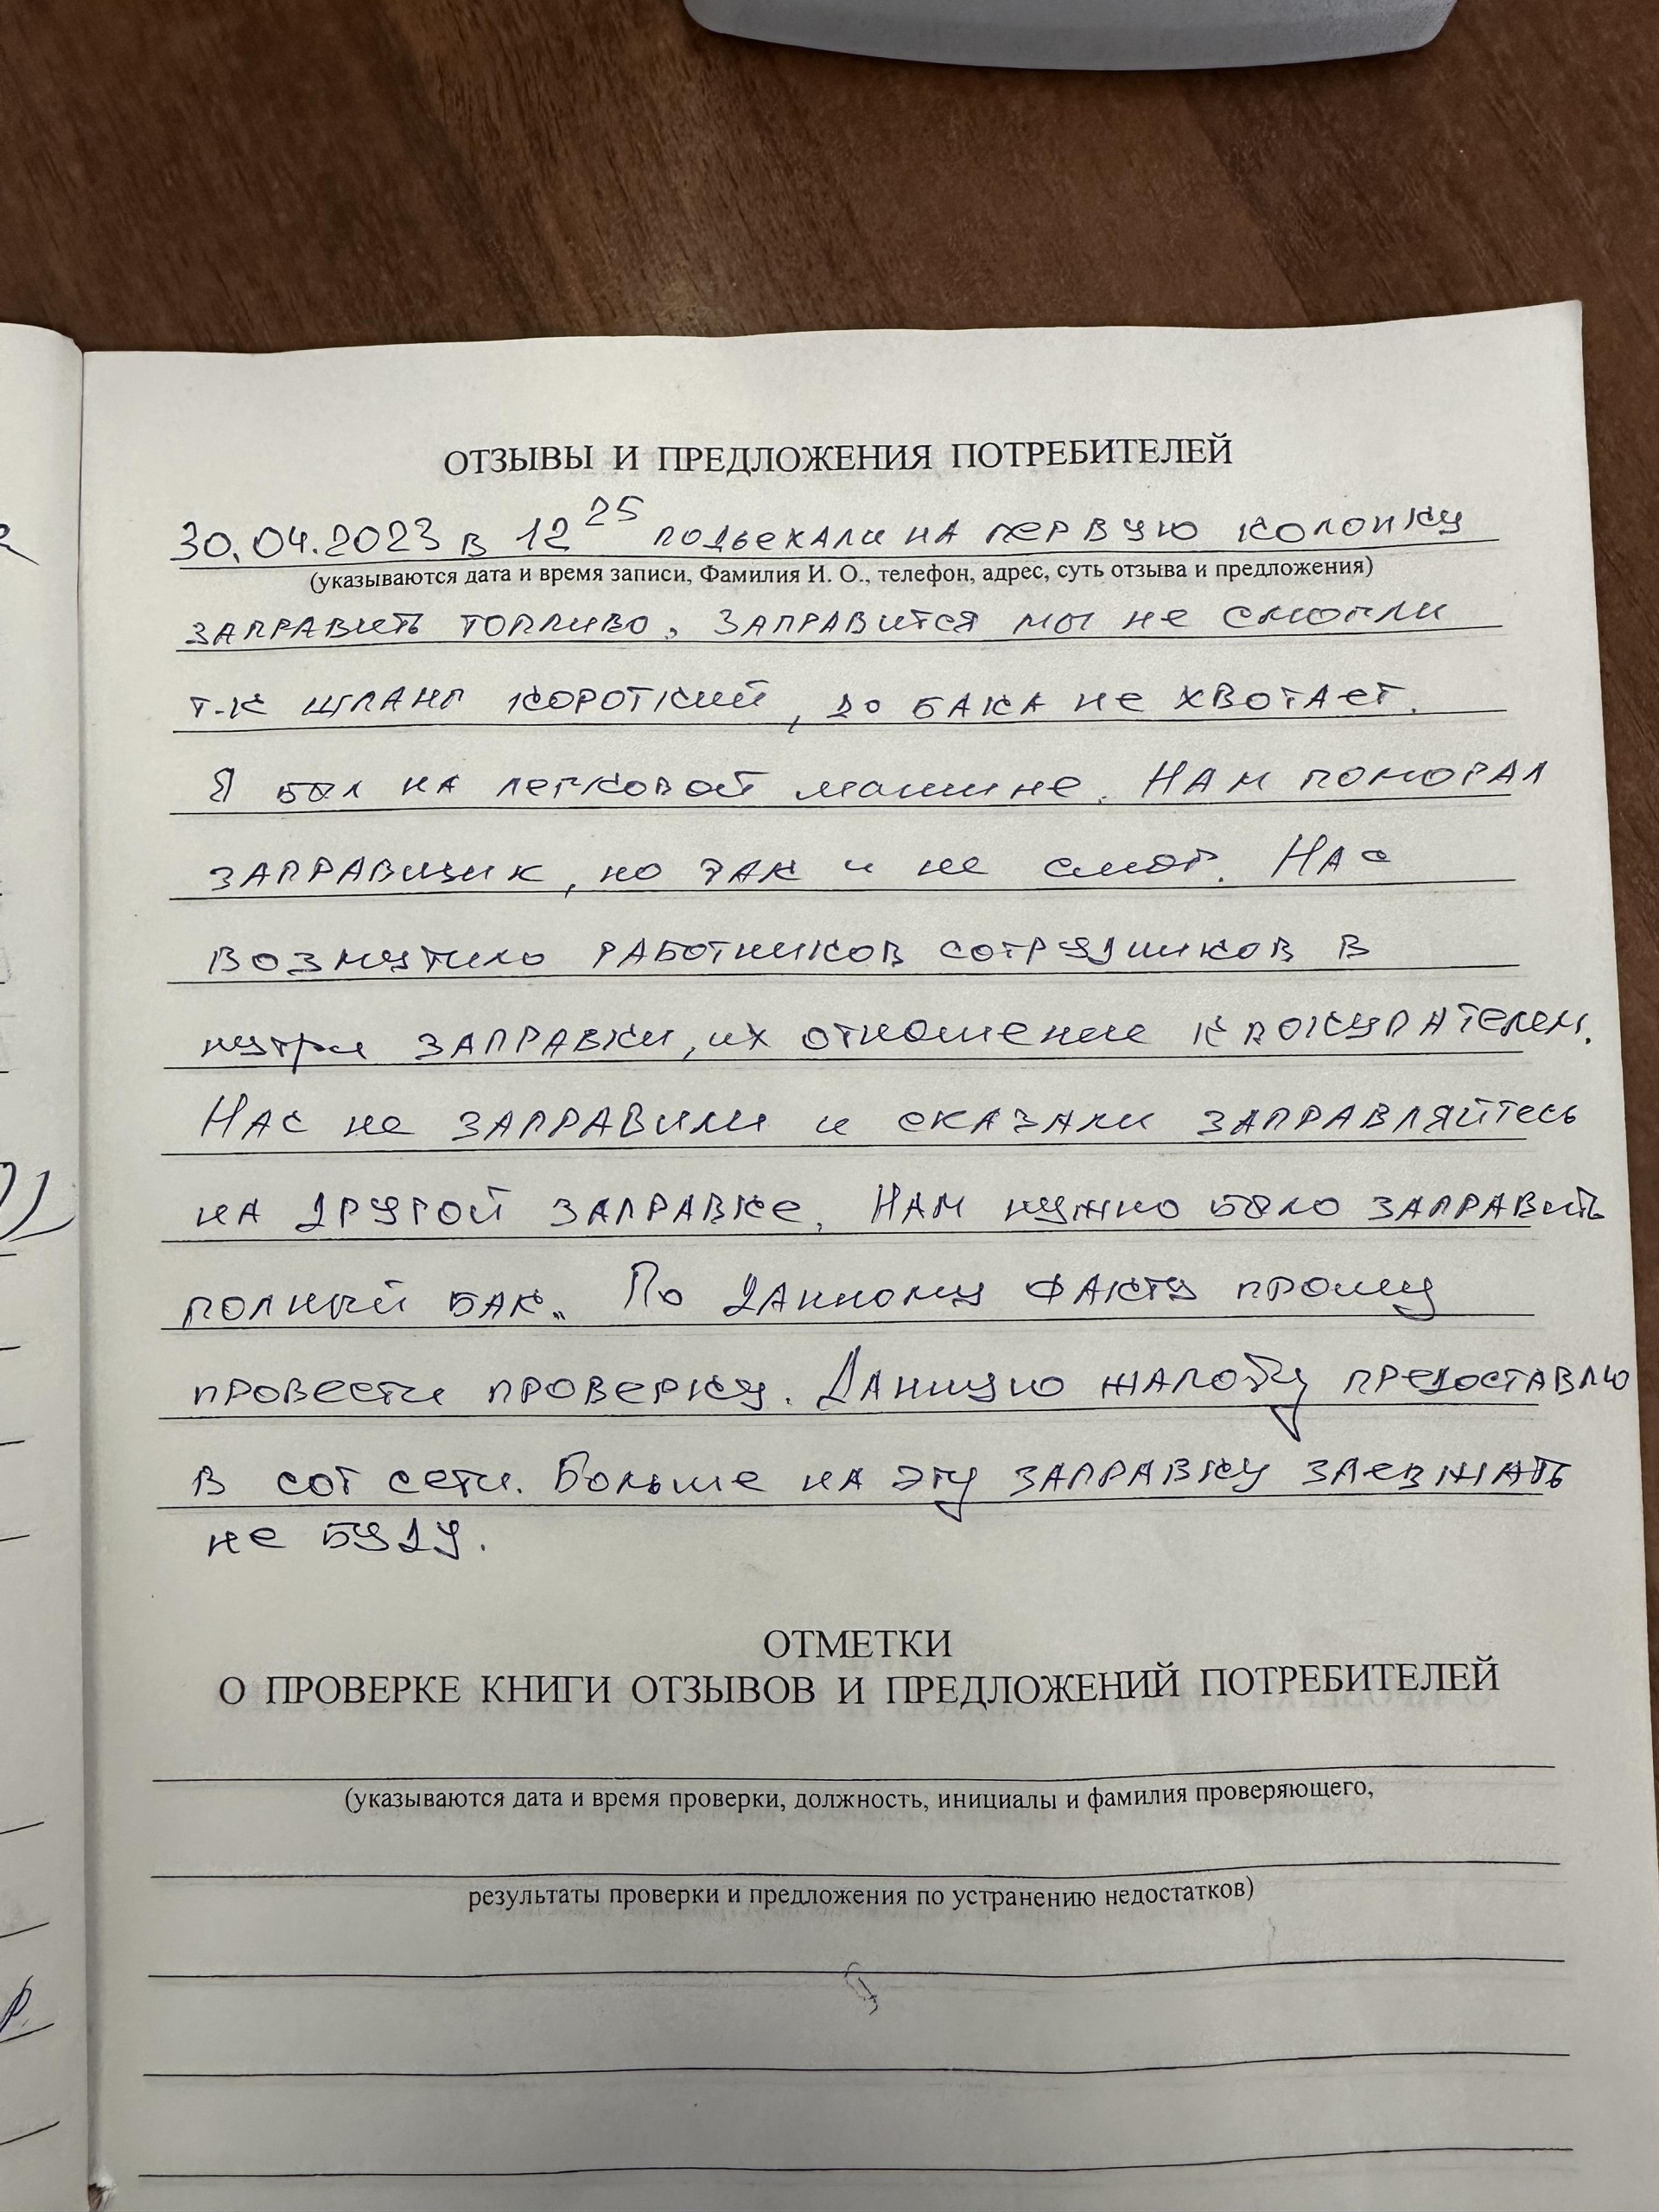 ОТЗЫВЫ И ПРЕДЛОЖЕНИЯ ПОТРЕБИТЕЛЕЙ
30.04.2023 в 12 25 подьехали на первую колонку
(указываются дата и время записи, Фамилия И. О., телефон, адрес, суть отзыва и предложения)
заправить топливо. Заправится мы не смогли
т-к шланг короткий, до бака не хвотает.
Я был на легковой машине. Нам помогал
заправщик, но так и не смог. Нас
возмутило работников сотрудников в
нутри заправки, их отношение к покупателем.
Нас не заправили и сказали заправляйтесь
на другой заправке. Нам нужно было заправить
полный бак. По данному факту прошу
провести проверку. Данную жалобу предоставлю
в сот сети. Больше на эту заправку заезжать
не буду.
ОТМЕТКИ
О ПРОВЕРКЕ КНИГИ ОТЗЫВОВ И ПРЕДЛОЖЕНИЙ ПОТРЕБИТЕЛЕЙ
(указываются дата и время проверки, должность, инициалы и фамилия проверяющего,
результаты проверки и предложения по устранению недостатков)